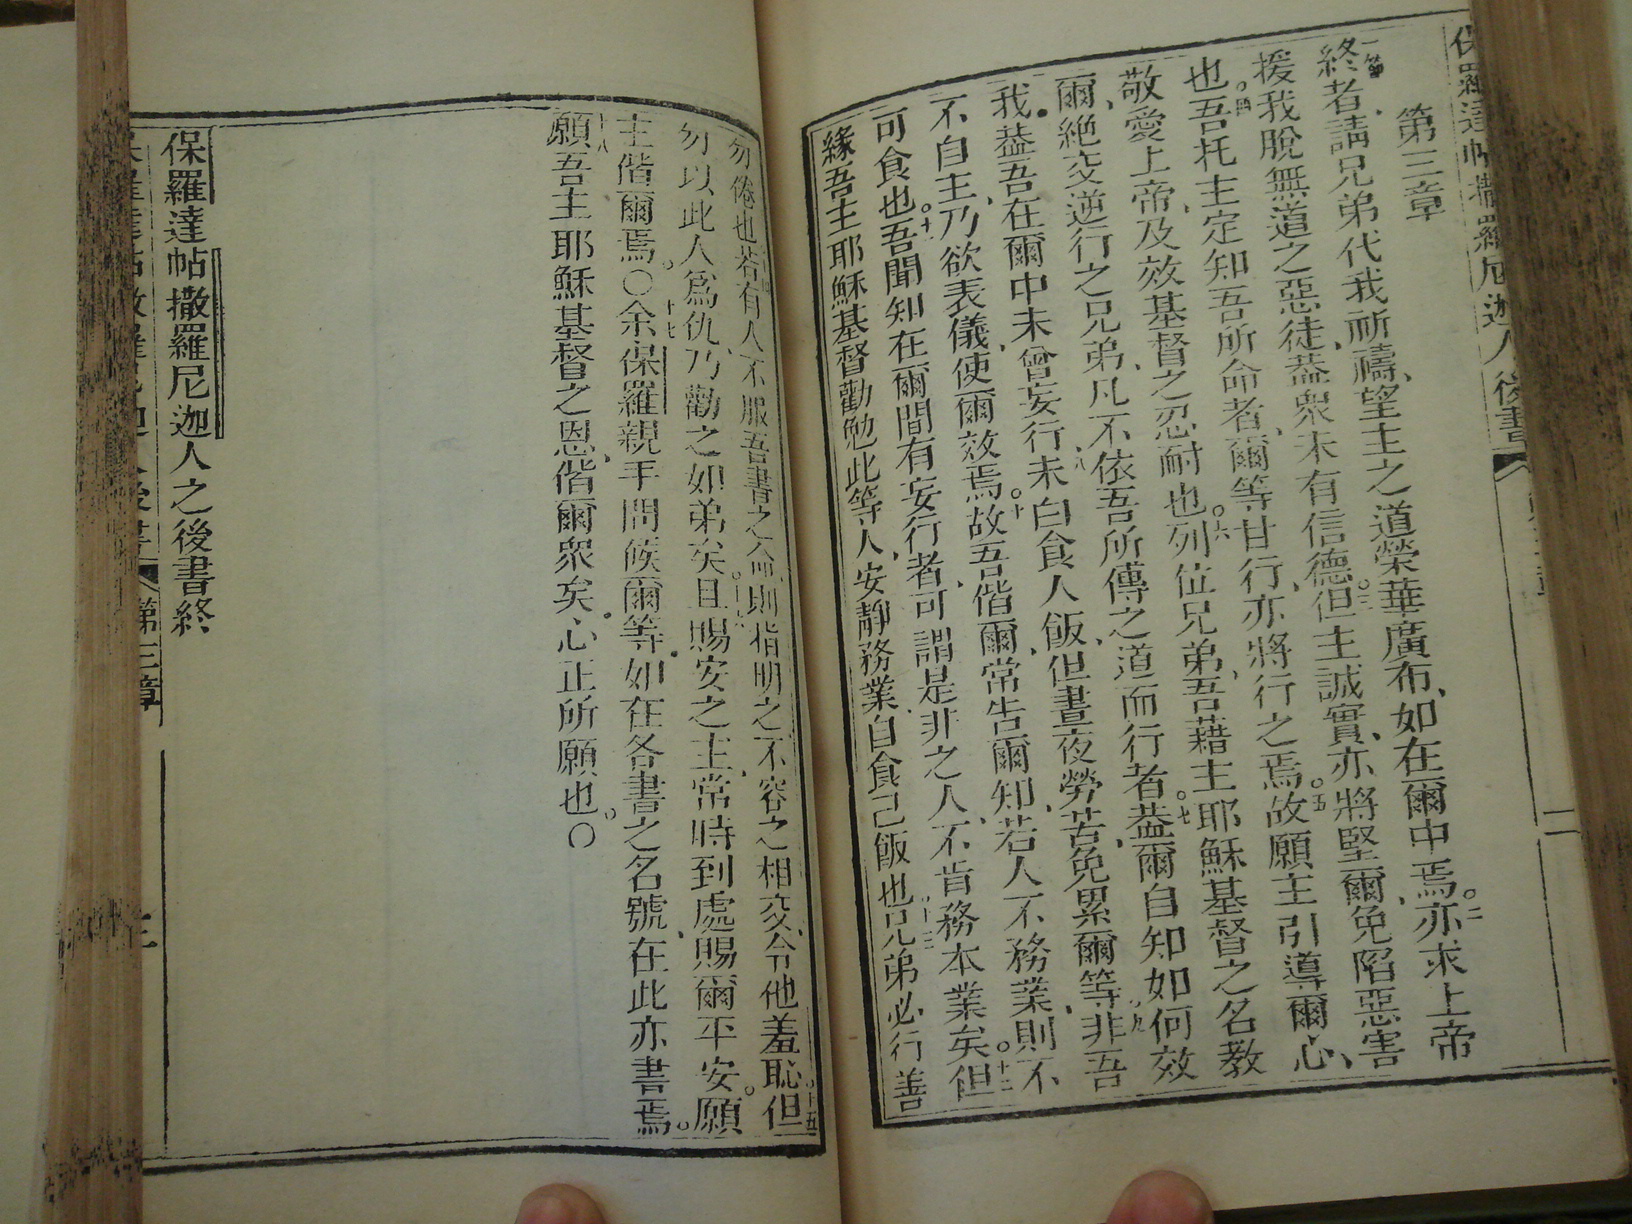 保羅達帖撒羅尼迦人後書
二
第三章
一節終者請兄弟代我祈禱望主之道榮華廣布如在爾中焉二亦求上帝
援我脫無道之惡徒葢眾未有信德三但主誠實亦將堅爾免陷惡害
也四吾托主定知吾所命者爾等甘行亦將行之焉五故願主引導爾心
敬愛上帝及效基督之忍耐也六列位兄弟吾藉主耶穌基督之名教
爾絕交逆行之兄弟凡不依吾所傳之道而行者七葢爾自知如何效
我葢吾在爾中未曾妄行八未白食人飯但晝夜勞苦免累爾等九非吾
不自主乃欲表儀使爾效焉十故吾偕爾常告爾知若人不務業則不
可食也十一吾聞知在爾間有妄行者可謂是非之人不肯務本業矣十二但
緣吾主耶穌基督勸勉此等人安靜務業自食己飯也十三兄弟必行善
勿倦也十四若有人不服吾書之命則指明之不容之相交令他羞恥十五但
勿以此人為仇乃勸之如弟矣十六且賜安之主常時到處賜爾平安願
主偕爾焉〇十七余保羅親手問候爾等如在各書之名號在此亦書焉
十八願吾主耶穌基督之恩偕爾眾矣心正所願也〇
保羅達帖撒羅尼迦人之後書終
第三章